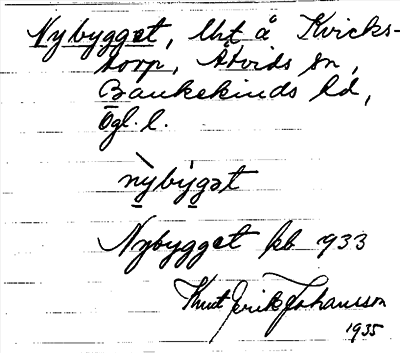 Nybygget, lht å Kvicks-
torp, Åtvids sn,
Bankekinds hd,
Ögl. l.
nỳbýgət
Nybygget kb 1933
Knut Erik Johansson
1935